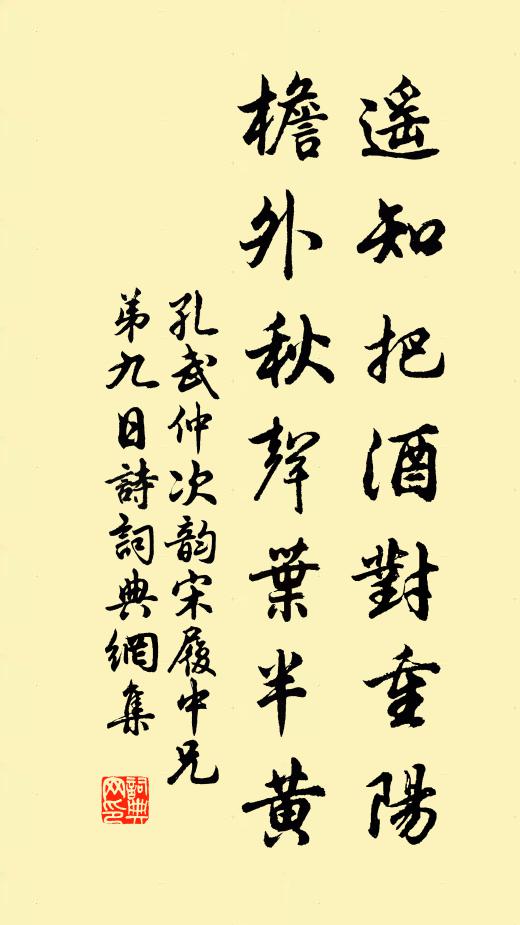 遥知把酒對重陽
檐外秋聲葉半黄
孔武仲次韵宋履中兄
弟九日詩詞典網集
詞典
网印